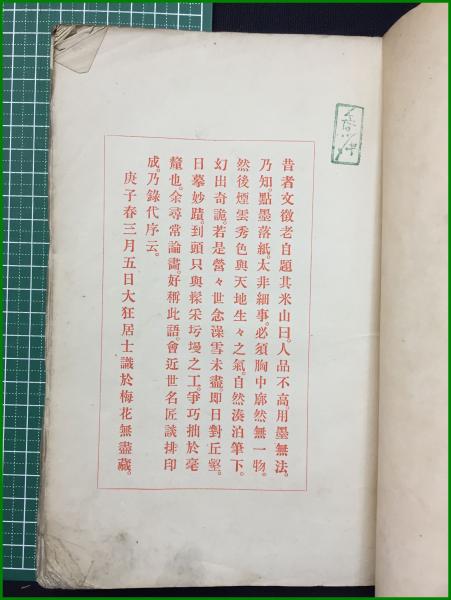 昔者文徵老自題其米山曰。人品不高。用墨無法。
乃知。點墨落紙。太非細事。必須胸中廓然無一物。
然後煙雲秀色與天地生々之氣。自然湊泊筆下。
幻出奇詭。若是營々世念。澡雪未盡。即日對丘壑。
日摹妙蹟。到頭只與髹采圬墁之工。爭巧拙於毫
釐也。余尋常論畵。好稱此語。會近世名匠談排印
成。乃錄代序云。
庚子春三月五日大狂居士識於梅花無盡藏。